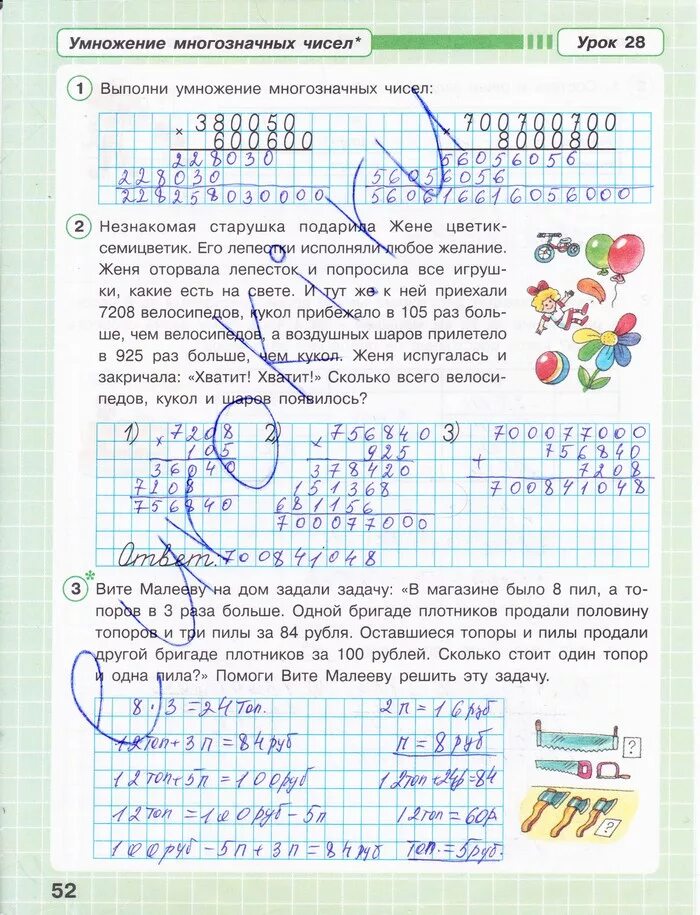 Умножение многозначных чисел*
Урок 28
1 Выполни умножение многозначных чисел:
× 380050
600600
228030
228030
228258030000
× 700700700
800080
56056056
56056056
560616616056000
2 Незнакомая старушка подарила Жене цветик-
семицветик. Его лепестки исполняли любое желание.
Женя оторвала лепесток и попросила все игруш-
ки, какие есть на свете. И тут же к ней приехали
7208 велосипедов, кукол прибежало в 105 раз боль-
ше, чем велосипедов, а воздушных шаров прилетело
в 925 раз больше, чем кукол. Женя испугалась и
закричала: «Хватит! Хватит!» Сколько всего велоси-
педов, кукол и шаров появилось?
1) × 7208
105
36040
7208
756840
2) × 756840
925
378420
151368
681156
700077000
3) 700077000
+ 756840
7208
700841048
Ответ: 700841048
3* Вите Малееву на дом задали задачу: «В магазине было 8 пил, а то-
поров в 3 раза больше. Одной бригаде плотников продали половину
топоров и три пилы за 84 рубля. Оставшиеся топоры и пилы продали
другой бригаде плотников за 100 рублей. Сколько стоит один топор
и одна пила?» Помоги Вите Малееву решить эту задачу.
8 · 3 = 24 топ.
12 топ + 3 п = 84 руб
12 топ + 5п = 100 руб
12 топ = 100 руб - 5п
100 руб - 5п + 3п = 84 руб
2п = 16 руб
п = 8 руб
12 топ + 24р = 84
12 топ = 60р
топ. = 5 руб.
?
?
52